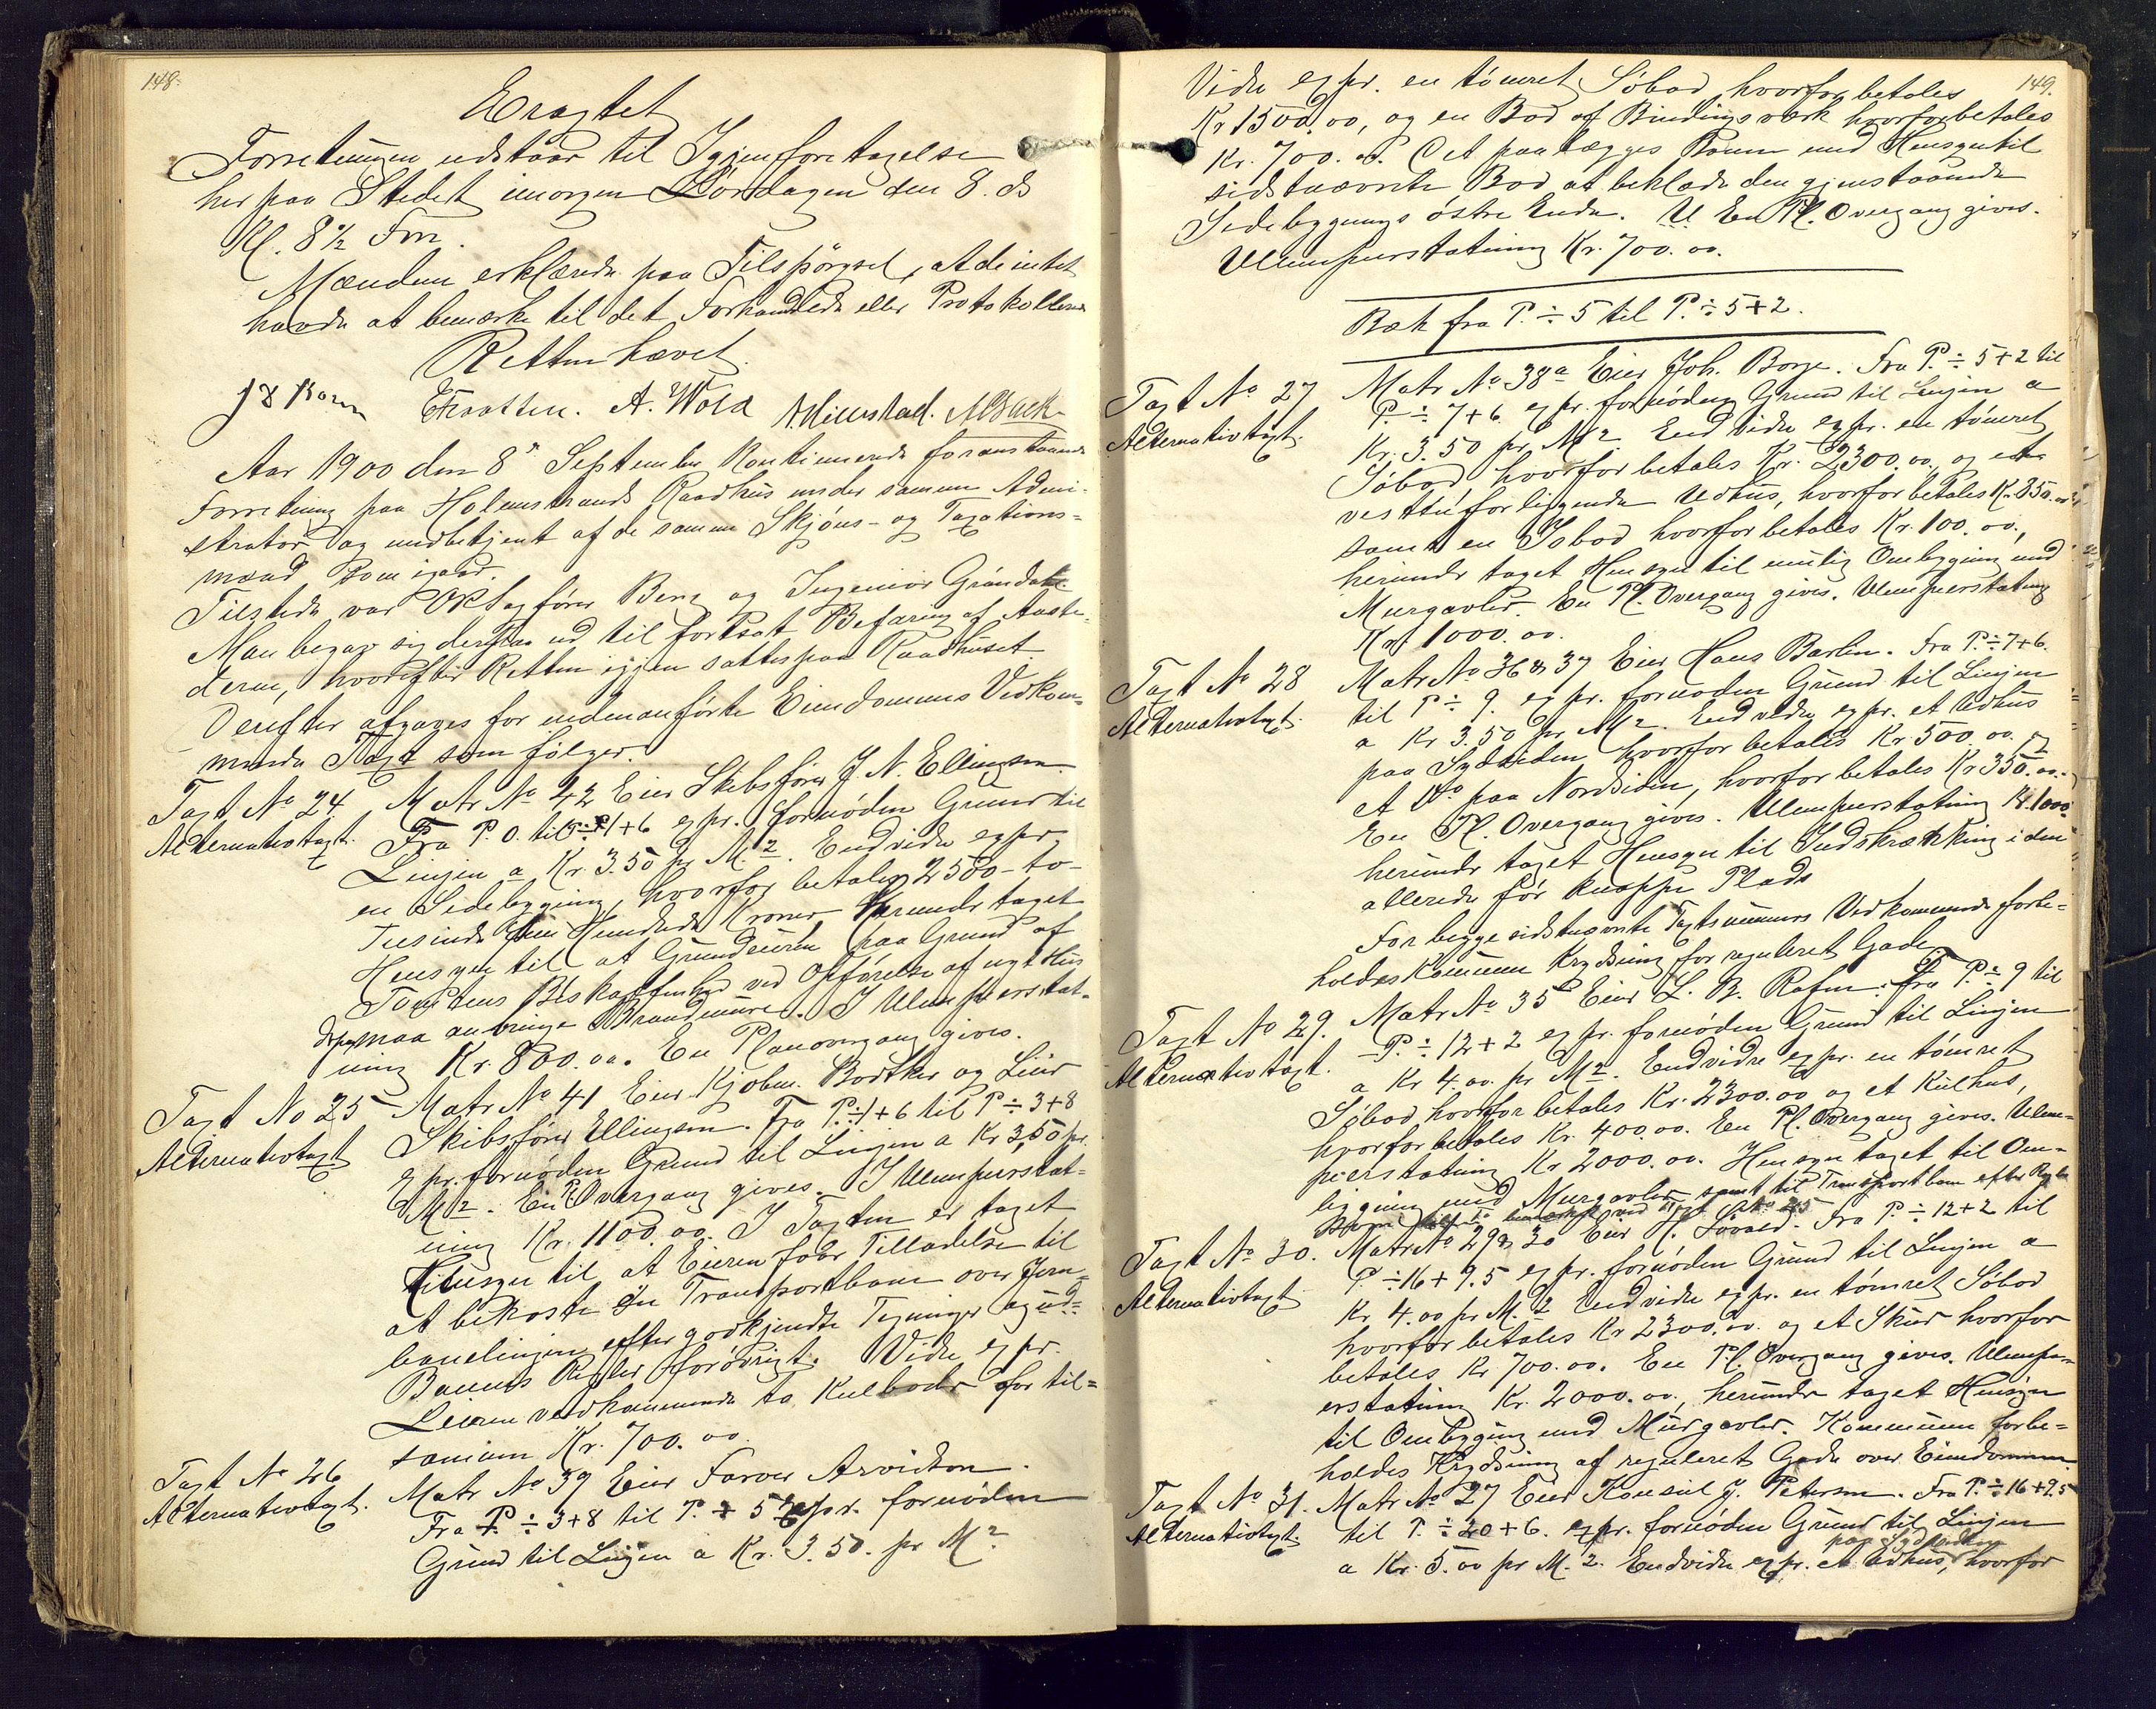 148.
Eragtet
Forretningen udstaar til Igjenforetagelse
her paa Stedet imorgen Lørdagen den 8. ds
Kl. 8½ Fm.
Mændene erklærede paa Tilspørgsel, at de intet
havde at bemærke til det Forhandlede eller Protokollerede
Retten hævet.
A. Wold
Aar 1900 den 8de September kontinuerede foranstaaende
Forretning paa Holmestrands Raadhus under samme Admini-
strator og medbetjent af de samme Skjøns- og Taxations-
mænd som igaar.
Tilstede var O.R.Sagfører Berg og Ingeniør Grøndahl
Man begav sig derfra ud til fortsat Befaring af Aaste-
derne, hvorefter Retten igjen sattes paa Raadhuset
Derefter afgaves for nedenanførte Eiendommes Vedkom-
mende Taxt som følger:
Taxt No 24 Matr No 42 Eier Skibsfører J. N. Ellingsen
Alternativtaxt. Fra P. 0. til P ÷ 1+6 expr. fornøden Grund til
Linjen a Kr. 3.50 pr M.2. Endvidere expr.
en Sidebygning, hvorfor betales 2500 - to-
Tusinde fem Hundrede Kroner - herunder taget
Hensyn til at Grundeieren paa Grund af
Tomtens Beskaffenhed ved Opførelse af nyt Hus
maa anbringe Brandmure. I Ulempeerstat-
ning Kr. 800.00. En Planovergang gives.
Taxt No 25 Matr No 41 Eier Kjøbm. Bødtker og Leier
Alternativtaxt Skibsfører Ellingsen. Fra P. ÷ 1+6 til P ÷ 3+8
expr. fornøden Grund til Linjen a Kr 3,50 pr.
M2. En Pl. Overgang gives. I Ulempeerstat-
ning Kr. 1100.00. I Taxten er taget
Hensyn til at Eieren faar Tilladelse til
at bekoste en Transportbane over Jern-
banelinjen efter godkjendte Tegninger og ved-
Banens Regler forøvrigt. Videre expr.
Leieren vedkommende to Kulboder for til-
sammen Kr. 700.00
Taxt No 26 Matr No 39 Eier Farver Arvidson.
Alternativtaxt. Fra P ÷ 3+8 til P. ÷ 5 expr. fornøden
Grund til Linjen a Kr. 3.50. pr M2
149.
Videre expr. en tømret Søbod, hvorfor betales
Kr 1500.00, og en Bod af Bindingsværk hvorfor betales
Kr. 700.00. Det paalægges Banen med Hensyn til
sidstnævnte Bod at beklæde den gjenstaaende
Sidebygnings østre Ende. En Pl. Overgang gives.
Ulempeerstatning Kr. 700.00.
Bæk fra P. ÷ 5 til P. ÷ 5+2.
Taxt No 27 Matr No 38a Eier Joh. Borge. Fra P. ÷ 5+2 til
Alternativtaxt. P. ÷ 7+6 expr. fornøden Grund til Linjen a
Kr. 3.50 pr. M2 Endvidere expr. en tømret
Søbod hvorfor betales Kr. 2300.00, og et
vestenfor liggende Udhus, hvorfor betales Kr. 350.00
samt en Isbod hvorfor betales Kr. 100.00,
herunder taget Hensyn til mulig Ombygning med
Murgavler. En Pl. Overgang gives. Ulempeerstatning
Kr. 1000.00.
Taxt No 28 Matr No 36 & 37 Eier Hans Barlin. Fra P. ÷ 7+6.
Alternativtaxt. til P ÷ 9. expr. fornøden Grund til Linjen
a Kr 3.50 pr M2. Endvidere expr. et Udhus
paa Sydsiden hvorfor betales Kr. 500.00. og
et Do paa Nordsiden, hvorfor betales Kr 350.00.
En Pl. Overgang gives. Ulempeerstatning Kr. 1000.
herunder taget Hensyn til Indskrænkning i den
allerede før knappe Plads
For begge sidstnævnte Taxtnummers Vedkommende forbe-
holdes Kommunen Krydsning for reguleret Gade
Taxt No 29. Matr No 35 Eier L. B. Rafn. Fra P. ÷ 9 til
Alternativtaxt. P. ÷ 12+2 expr. fornøden Grund til Linjen
a Kr 4.00 pr M2. Endvidere expr. en tømret
Søbod hvorfor betales Kr. 2300.00 og et Kulhus,
hvorfor betales Kr. 400.00. En Pl. Overgang gives. Ulem-
peerstatning Kr 2000.00. Hensyn taget til Om-
bygning med Murgavler samt til Transportbane efter Regler
Taxt No 30. Matr No 29 & 30 Eier H. Løvald. Fra P. ÷ 12+2 til
Alternativtaxt P. ÷ 16+9.5 expr. fornøden Grund til Linjen a
Kr. 4.00 pr M.2 Endvidere expr. en tømret Søbod
hvorfor betales Kr 2300.00. og et Skur hvorfor
betales Kr 700.00. En Pl. Overgang gives. Ulempe-
erstatning Kr. 2000.00, herunder taget Hensyn
til Ombygning med Murgavler. Kommunen forbe-
holdes Krydsning af reguleret Gade over Eiendommen
Taxt No 31. Matr No 27 Eier Konsul J. Petersen. Fra P. ÷ 16+9.5
Alternativtaxt. til P. ÷ 20+6. expr. fornøden Grund til Linjen
paa Sydsiden
a Kr. 5.00 pr M.2. Endvidere expr. et Udhus, hvorfor